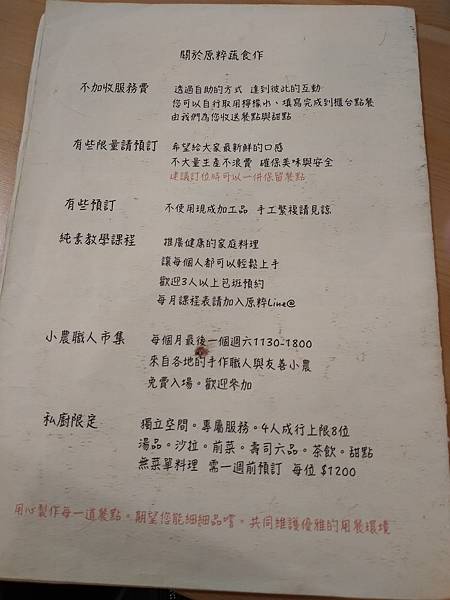 關於原粹蔬食作
不加收服務費 透過自助的方式 達到彼此的互動
您可以自行取用檸檬水、填寫完成到櫃台點餐
由我們為您收送餐點與甜點
有些限量請預訂 希望給大家最新鮮的口感
不大量生產不浪費 確保美味與安全
建議訂位時可以一併保留餐點
有些預訂 不使用現成加工品 手工繁複請見諒
純素教學課程 推廣健康的家庭料理
讓每個人都可以輕鬆上手
歡迎3人以上包班預約
每月課程表請加入原粹Line@
小農職人市集 每個月最後一個週六1130-1800
來自各地的手作職人與友善小農
免費入場。歡迎參加
私廚限定 獨立空間。專屬服務。4人成行上限8位
湯品。沙拉。前菜。壽司六品。茶飲。甜點
無菜單料理 需一週前預訂 每位 $1200
用心製作每一道餐點。期望您能細細品嚐。共同維護優雅的用餐環境